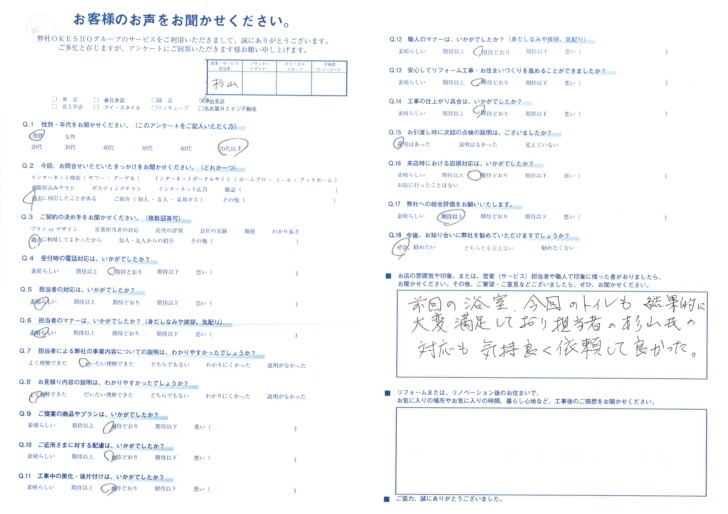 お客様のお声をお聞かせください。
弊社OKESHOグループのサービスをご利用いただきまして、誠にありがとうございます。
ご多忙と存じますが、アンケートにご回答いただきます様お願い申し上げます。
営業・サービス担当者
杉山
□ 本店 □ 春日井店 □ 緑店
□ アイ・スタイル □ リノキューブ □ 名古屋R.エイジ不動産
Q.1 性別・年代をお聞かせください。(このアンケートをご記入いただく方)
男性 女性
20代 30代 40代 50代 60代 70代以上
Q.2 今回、お問合せいただいたきっかけをお聞かせください。(どれか一つ)
インターネット検索(ヤフー・グーグル) インターネットポータルサイト(ホームプロ・エービー・アットホーム)
新聞折込みチラシ ポスティングチラシ インターネット広告 雑誌( )
過去に利用したことがある ご紹介(知人・友人・東邦ガス) その他( )
Q.3 ご契約の決め手をお聞かせください。(複数回答可)
プラン or デザイン 営業担当者の対応 近所の評判 会社の実績 価格 わかり易さ
過去に利用してよかったから 知人・友人からの紹介 その他( )
Q.4 受付時の電話対応は、いかがでしたか?
素晴らしい 期待以上 期待どおり 期待以下 悪い( )
Q.5 担当者の対応は、いかがでしたか?
素晴らしい 期待以上 期待どおり 期待以下 悪い( )
Q.6 担当者のマナーは、いかがでしたか?(身だしなみや挨拶、気配り)
素晴らしい 期待以上 期待どおり 期待以下 悪い( )
Q.7 担当者による弊社の事業内容についての説明は、わかりやすかったでしょうか?
よく理解できた だいたい理解できた どちらでもない わかりにくかった 説明がなかった
Q.8 お見積り内容の説明は、わかりやすかったでしょうか?
よく理解できた だいたい理解できた どちらでもない わかりにくかった 説明がなかった
Q.9 ご提案の商品やプランは、いかがでしたか?
素晴らしい 期待以上 期待どおり 期待以下 悪い( )
Q.10 ご近所さまに対する配慮は、いかがでしたか?
素晴らしい 期待以上 期待どおり 期待以下 悪い( )
Q.11 工事中の美化・後片付けは、いかがでしたか?
素晴らしい 期待以上 期待どおり 期待以下 悪い( )
Q.12 職人のマナーは、いかがでしたか?(身だしなみや挨拶、気配り)
素晴らしい 期待以上 期待どおり 期待以下 悪い( )
Q.13 安心してリフォーム工事・お住まいづくりを進めることができましたか?
素晴らしい 期待以上 期待どおり 期待以下 悪い( )
Q.14 工事の仕上がり具合は、いかがでしたか?
素晴らしい 期待以上 期待どおり 期待以下 悪い( )
Q.15 お引渡し時に次回の点検の説明は、ございましたか?
説明はあった 説明はなかった 覚えていない
Q.16 来店時における店頭対応は、いかがでしたか?
素晴らしい 期待以上 期待どおり 期待以下 悪い( )
お店に行ったことはない
Q.17 弊社への総合評価をお願いいたします。
素晴らしい 期待以上 期待どおり 期待以下 悪い( )
Q.18 今後、お知り合いに弊社を勧めていただけますでしょうか?
ぜひ、勧めたい どちらとも言えない 勧めたくない
■ お店の雰囲気や印象、または、営業(サービス)担当者や職人で印象に残った者がおりましたら、
お聞かせください。その他、ご要望・ご意見などございましたら、ぜひ、お聞かせください。
前回の浴室、今回のトイレも結果的に
大変満足しており担当者の杉山氏の
対応も気持良く依頼して良かった。
■ リフォームまたは、リノベーション後のお住まいで、
お気に入りの場所やお気に入りの時間、暮らし心地など、工事後のご感想をお聞かせください。
■ ご協力、誠にありがとうございました。